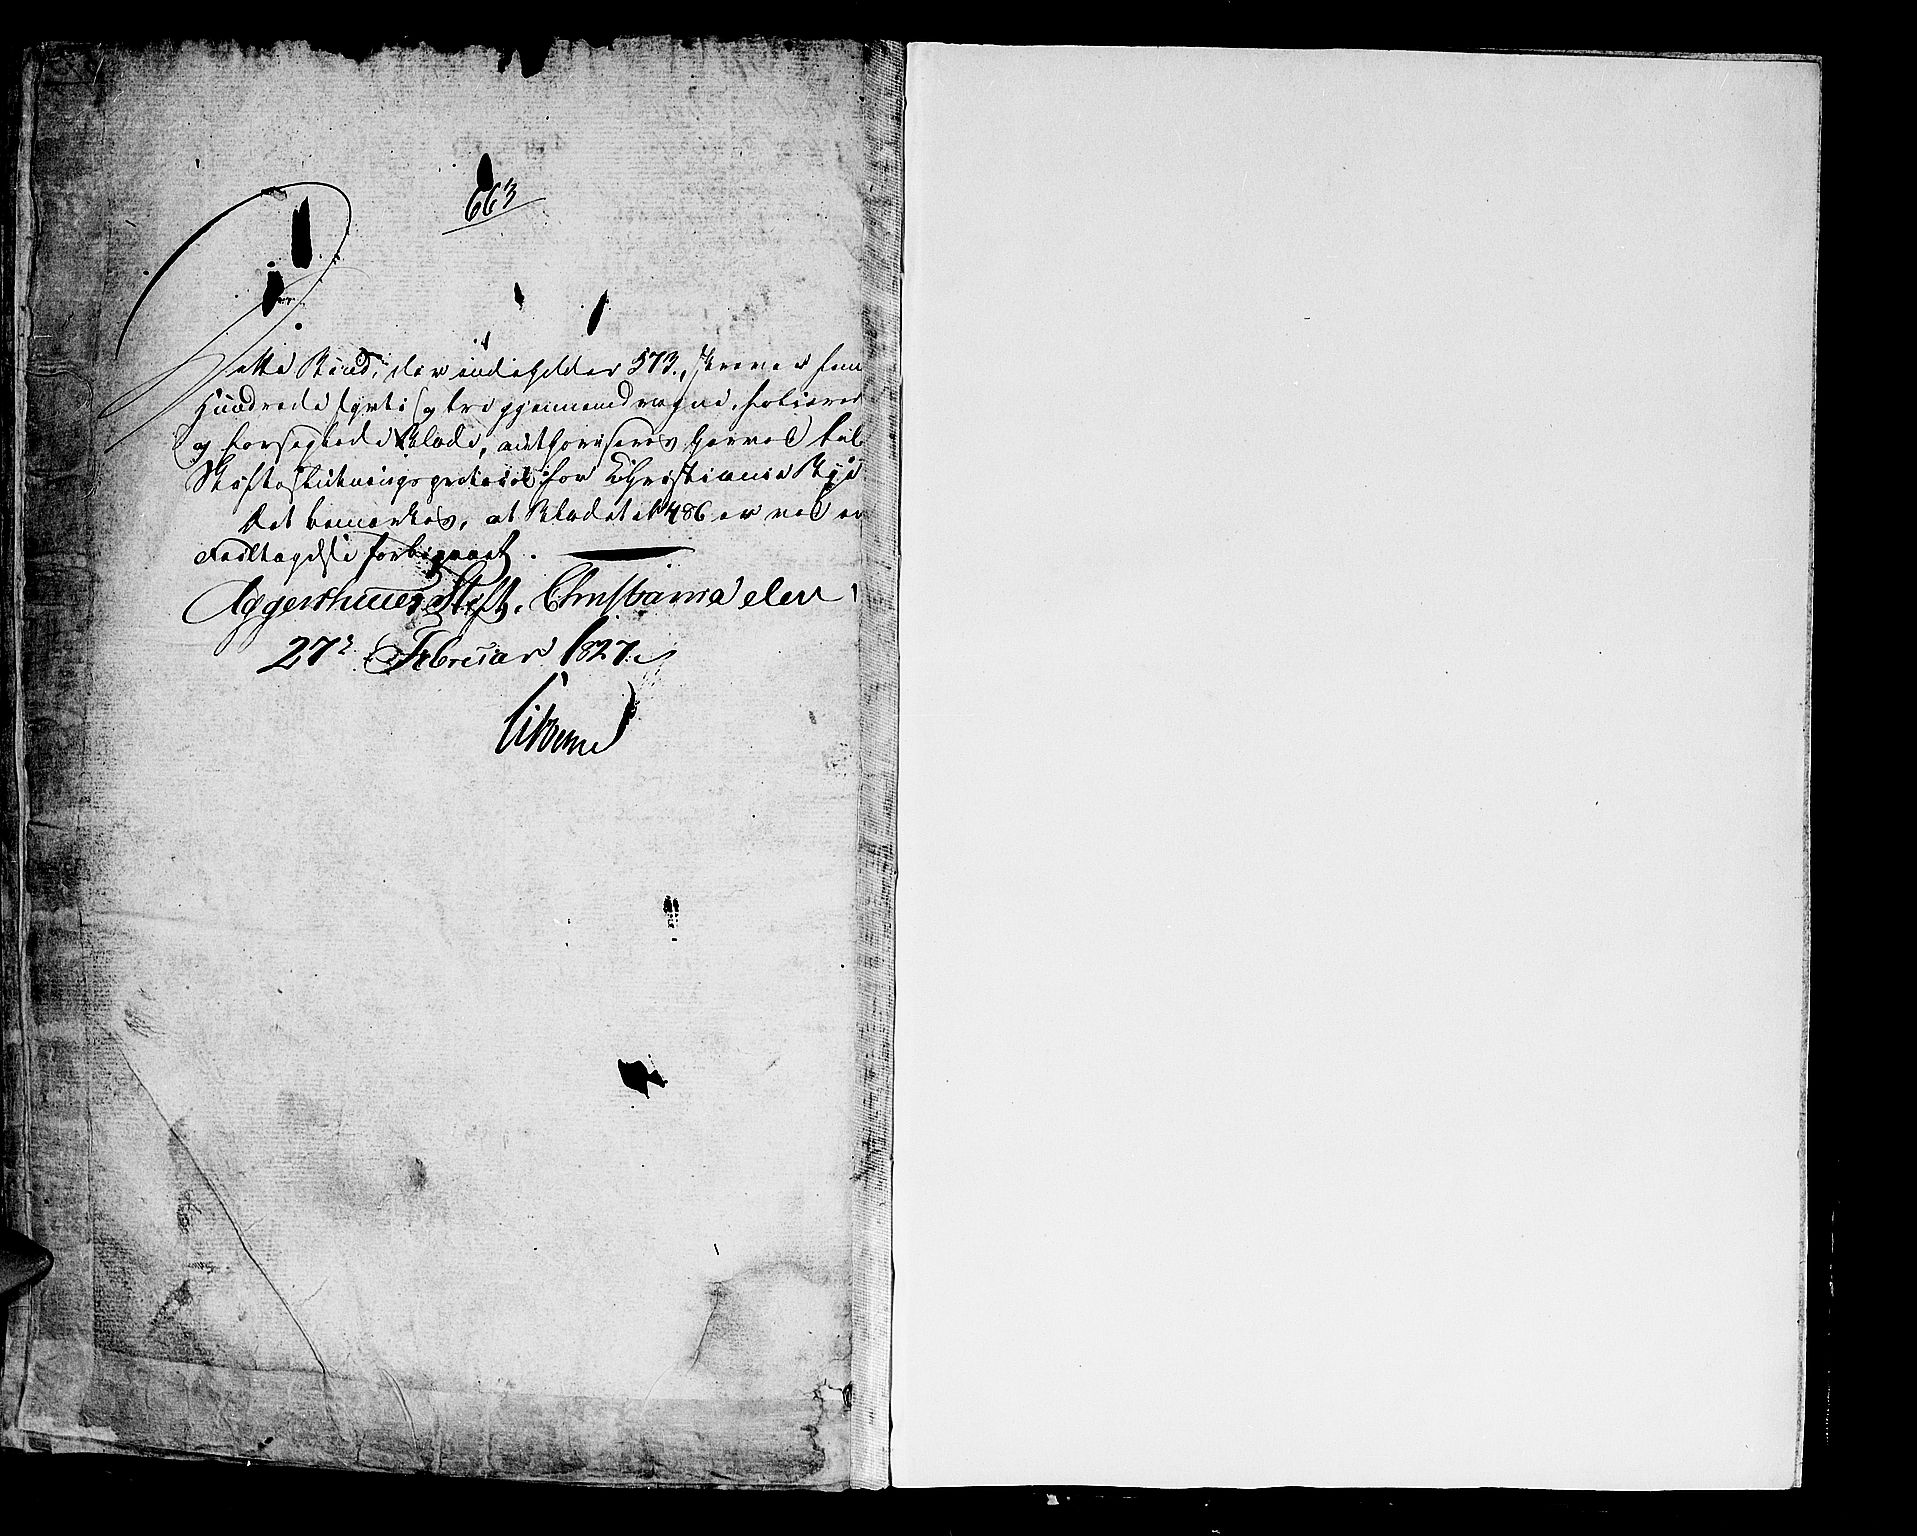 663
Dette Bind, der indeholder 573, skriver fem
Hundrede sytti og tre gjennemdragne, folierede
og forseglede Blade, authoriseres herved til
Skifteslutningsprotocol for Christiania Bye
Det bemærkes, at Bladet № 486 er ved en
Feiltagelse forbigaaet.
Aggershuus Stift, Christiania den
27de Februar 1827.